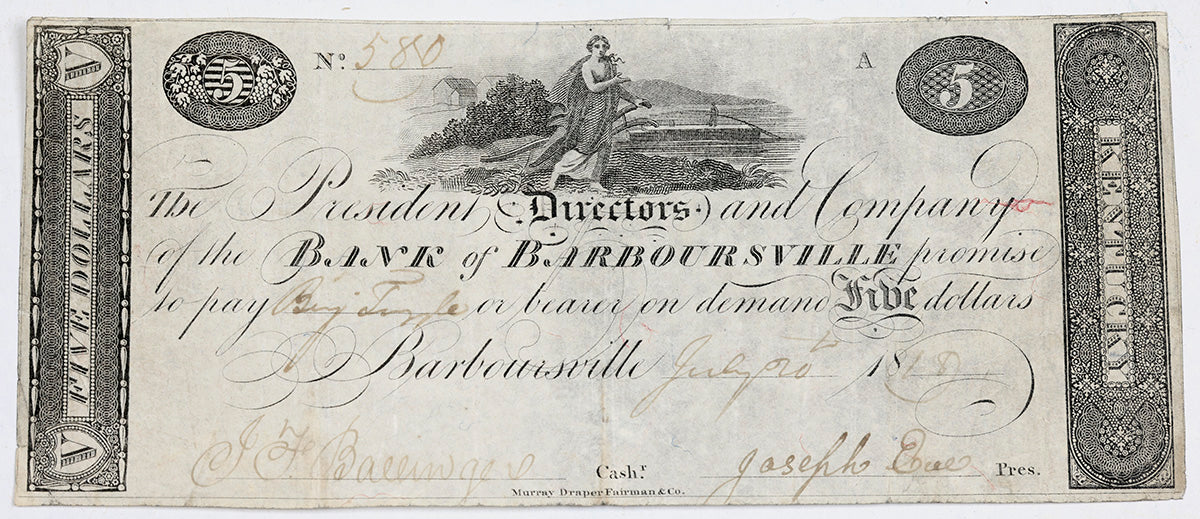 V FIVE DOLLARS V
5
Nº. 580
A
5
KENTUCKY
The President Directors and Company
of the BANK of BARBOURSVILLE promise
to pay or bearer on demand Five dollars
Barboursville July 20th 1818
J Ballinger Cashr. Joseph Eve Pres.
Murray Draper Fairman & Co.